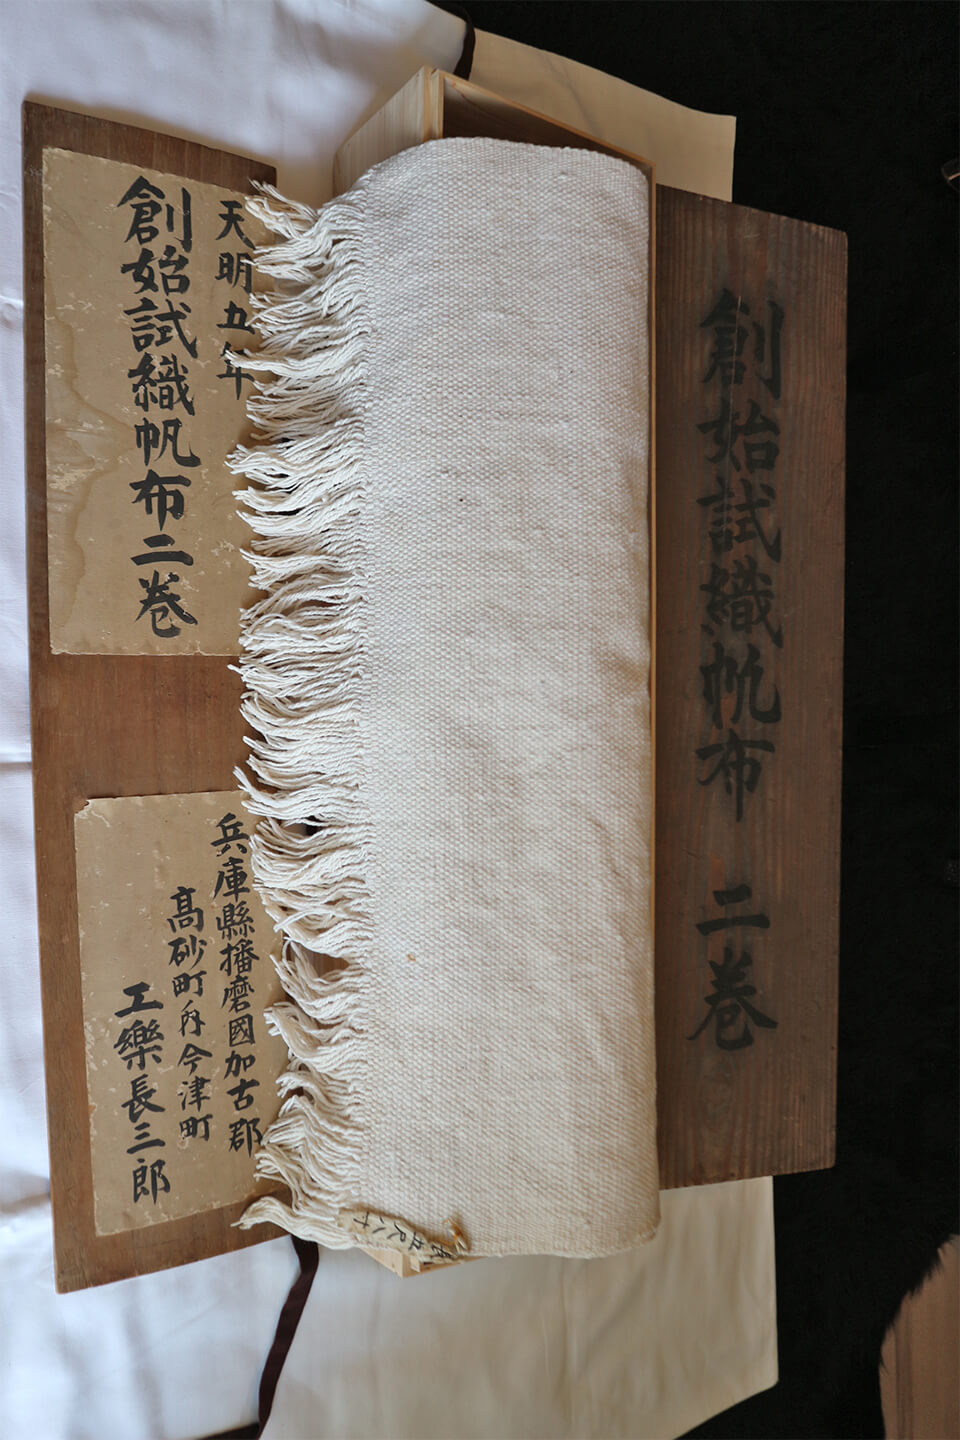 創始試織帆布 二巻
天明五年
創始試織帆布二巻
兵庫縣播磨國加古郡
高砂町内今津町
工樂長三郎